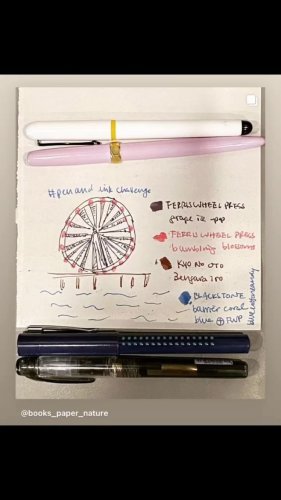 #pen and ink challenge
FERRIS WHEEL PRESS
grape ice pop
FERRIS WHEEL PRESS
bumbling blossoms
KYO NO OTO
BLACKSTONE
barrier coral
blue ⊕ FWP
@books_paper_nature